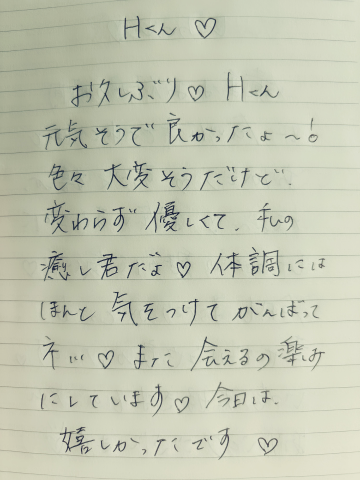 Hくん ♡
お久しぶり♡ Hくん
元気そうで良かったよ〜!
色々大変そうだけど、
変わらず優しくて、私の
癒し君だよ♡ 体調には
ほんと気をつけてがんばって
ネ…♡ また会えるの楽しみ
にしています♡ 今日は、
嬉しかったです ♡